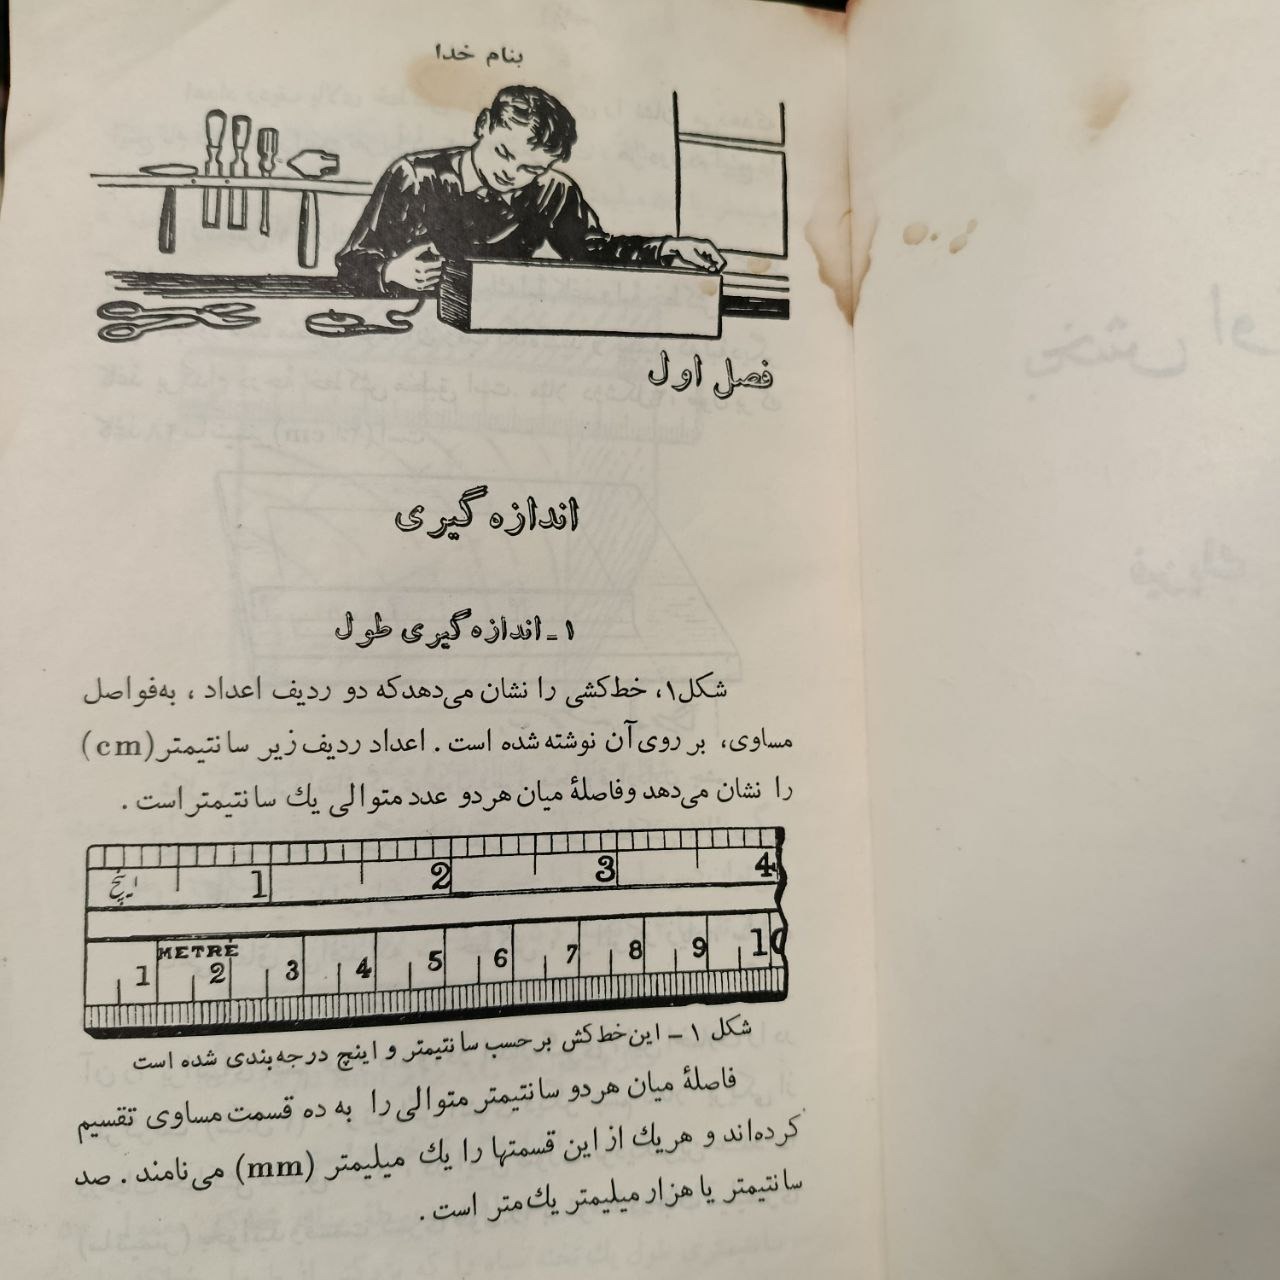 بنام خدا
فصل اول
اندازه‌گیری
۱ـ اندازه‌گیری طول
شکل۱، خط‌کشی را نشان می‌دهدکه دو ردیف اعداد ، به‌فواصل
مساوی، بر روی‌آن نوشته شده است . اعداد ردیف زیر سانتیمتر(cm)
را نشان می‌دهد وفاصلهٔ میان هردو عدد متوالی یك سانتیمتراست .
اینچ 1 2 3 4
METRE
1 2 3 4 5 6 7 8 9 10
شکل ۱ – این‌خط‌کش برحسب سانتیمتر و اینچ درجه‌بندی شده است
فاصلهٔ میان هردو سانتیمتر متوالی را به ده قسمت مساوی تقسیم
کرده‌اند و هریك ازاین قسمتها را یك میلیمتر (mm) می‌نامند . صد
سانتیمتر یا هزار میلیمتر یك‌متر است .
بخش او
فیزیك